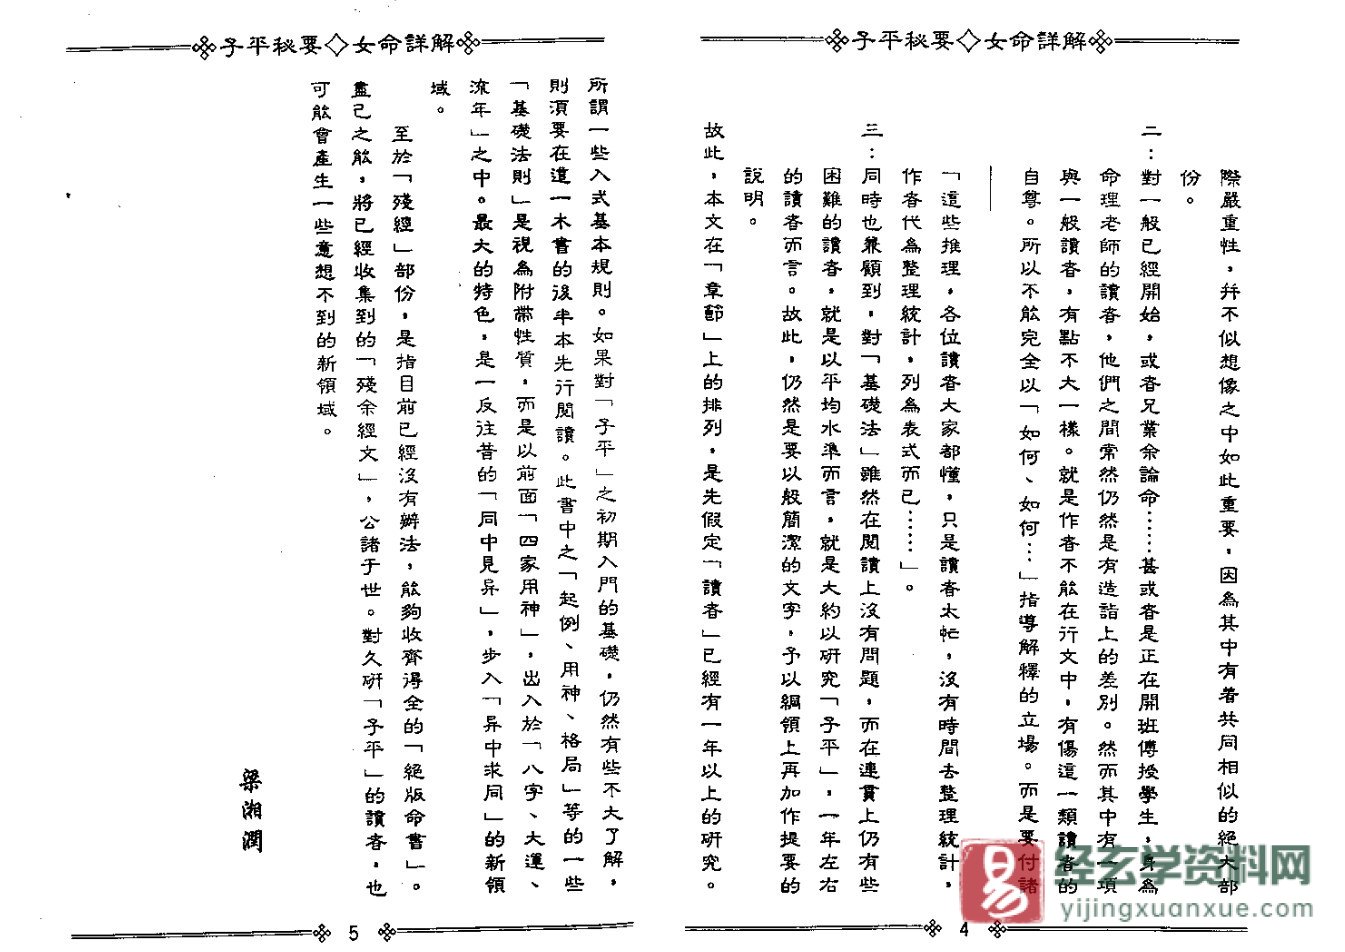 子平秘要◇女命詳解
際嚴重性，幷不似想像之中如此重要，因為其中有着共同相似的絕大部
份。
二：對一般已經開始，或者兄業余論命……甚或者是正在開班傳授學生，身為
命理老師的讀者，他們之間常然仍然是有造詣上的差別。然而其中有一項
與一般讀者，有點不大一樣。就是作者不能在行文中，有傷這一類讀者的
自尊。所以不能完全以「如何、如何…」指導解釋的立場。而是要付諸
「這些推理，各位讀者大家都懂，只是讀者太忙，沒有時間去整理統計，
作者代為整理統計，列為表式而已……」。
三：同時也兼顧到，對「基礎法」雖然在閱讀上沒有問題，而在連貫上仍有些
困難的讀者，就是以平均水準而言，就是大約以研究「子平」，一年左右
的讀者而言。故此，仍然是要以般簡潔的文字，予以綱領上再加作提要的
說明。
故此，本文在「章節」上的排列，是先假定「讀者」已經有一年以上的研究。
4
子平秘要◇女命詳解
所謂一些入式基本規則。如果對「子平」之初期入門的基礎，仍然有些不大了解，
則須要在這一木書的後半本先行閱讀。此書中之「起例、用神、格局」等的一些
「基礎法則」是視為附帶性質，而是以前面「四家用神」，出入於「八字、大運、
流年」之中。最大的特色，是一反往昔的「同中見异」，步入「异中求同」的新領
域。
至於「殘經」部份，是指目前已經沒有辦法，能夠收齊得全的「絕版命書」。
盡己之能，將已經收集到的「殘余經文」，公諸于世。對久研「子平」的讀者，也
可能會產生一些意想不到的新領域。
梁湘潤
5
易
经玄学资料网
yijingxuanxue.com